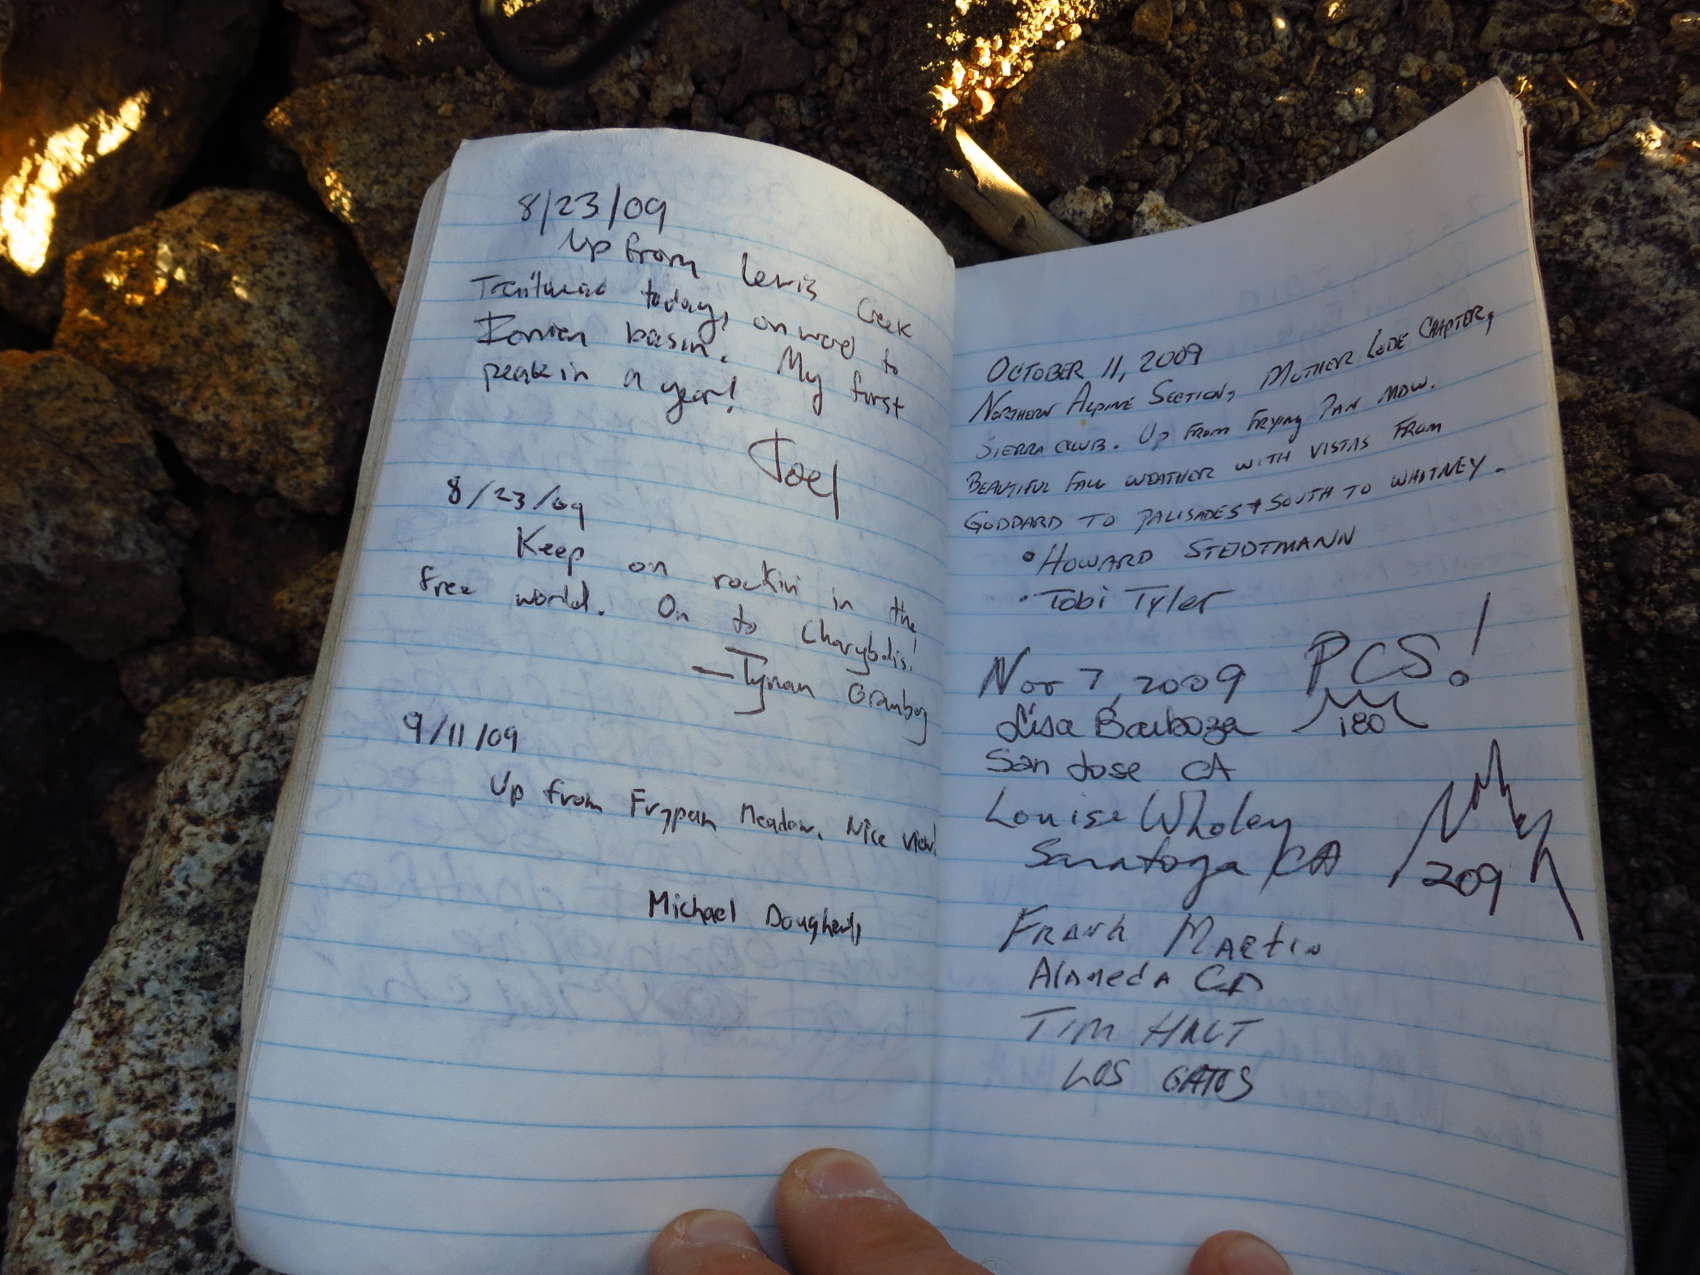 8/23/09
Up from Lewis Creek
Trailhead today, onward to
Ionian basin. My first
peak in a year!
Joel
8/23/09
Keep on rockin in the
free world. On to Charybdis!
— Tynan Granberg
9/11/09
Up from Frypan Meadow. Nice view!
Michael Dougherty
OCTOBER 11, 2009
NORTHERN ALPINE SECTION, MOTHER LODE CHAPTER,
SIERRA CLUB. UP FROM FRYING PAN MDW.
BEAUTIFUL FALL WEATHER WITH VISTAS FROM
GODDARD TO PALISADES + SOUTH TO WHITNEY.
• HOWARD STEIDTMANN
• Tobi Tyler
Nov 7, 2009 PCS!
Lisa Barboza 180
San Jose CA
Louise Wholey
Saratoga CA 209
FRANK MARTIN
Alameda CA
TIM HULT
LOS GATOS